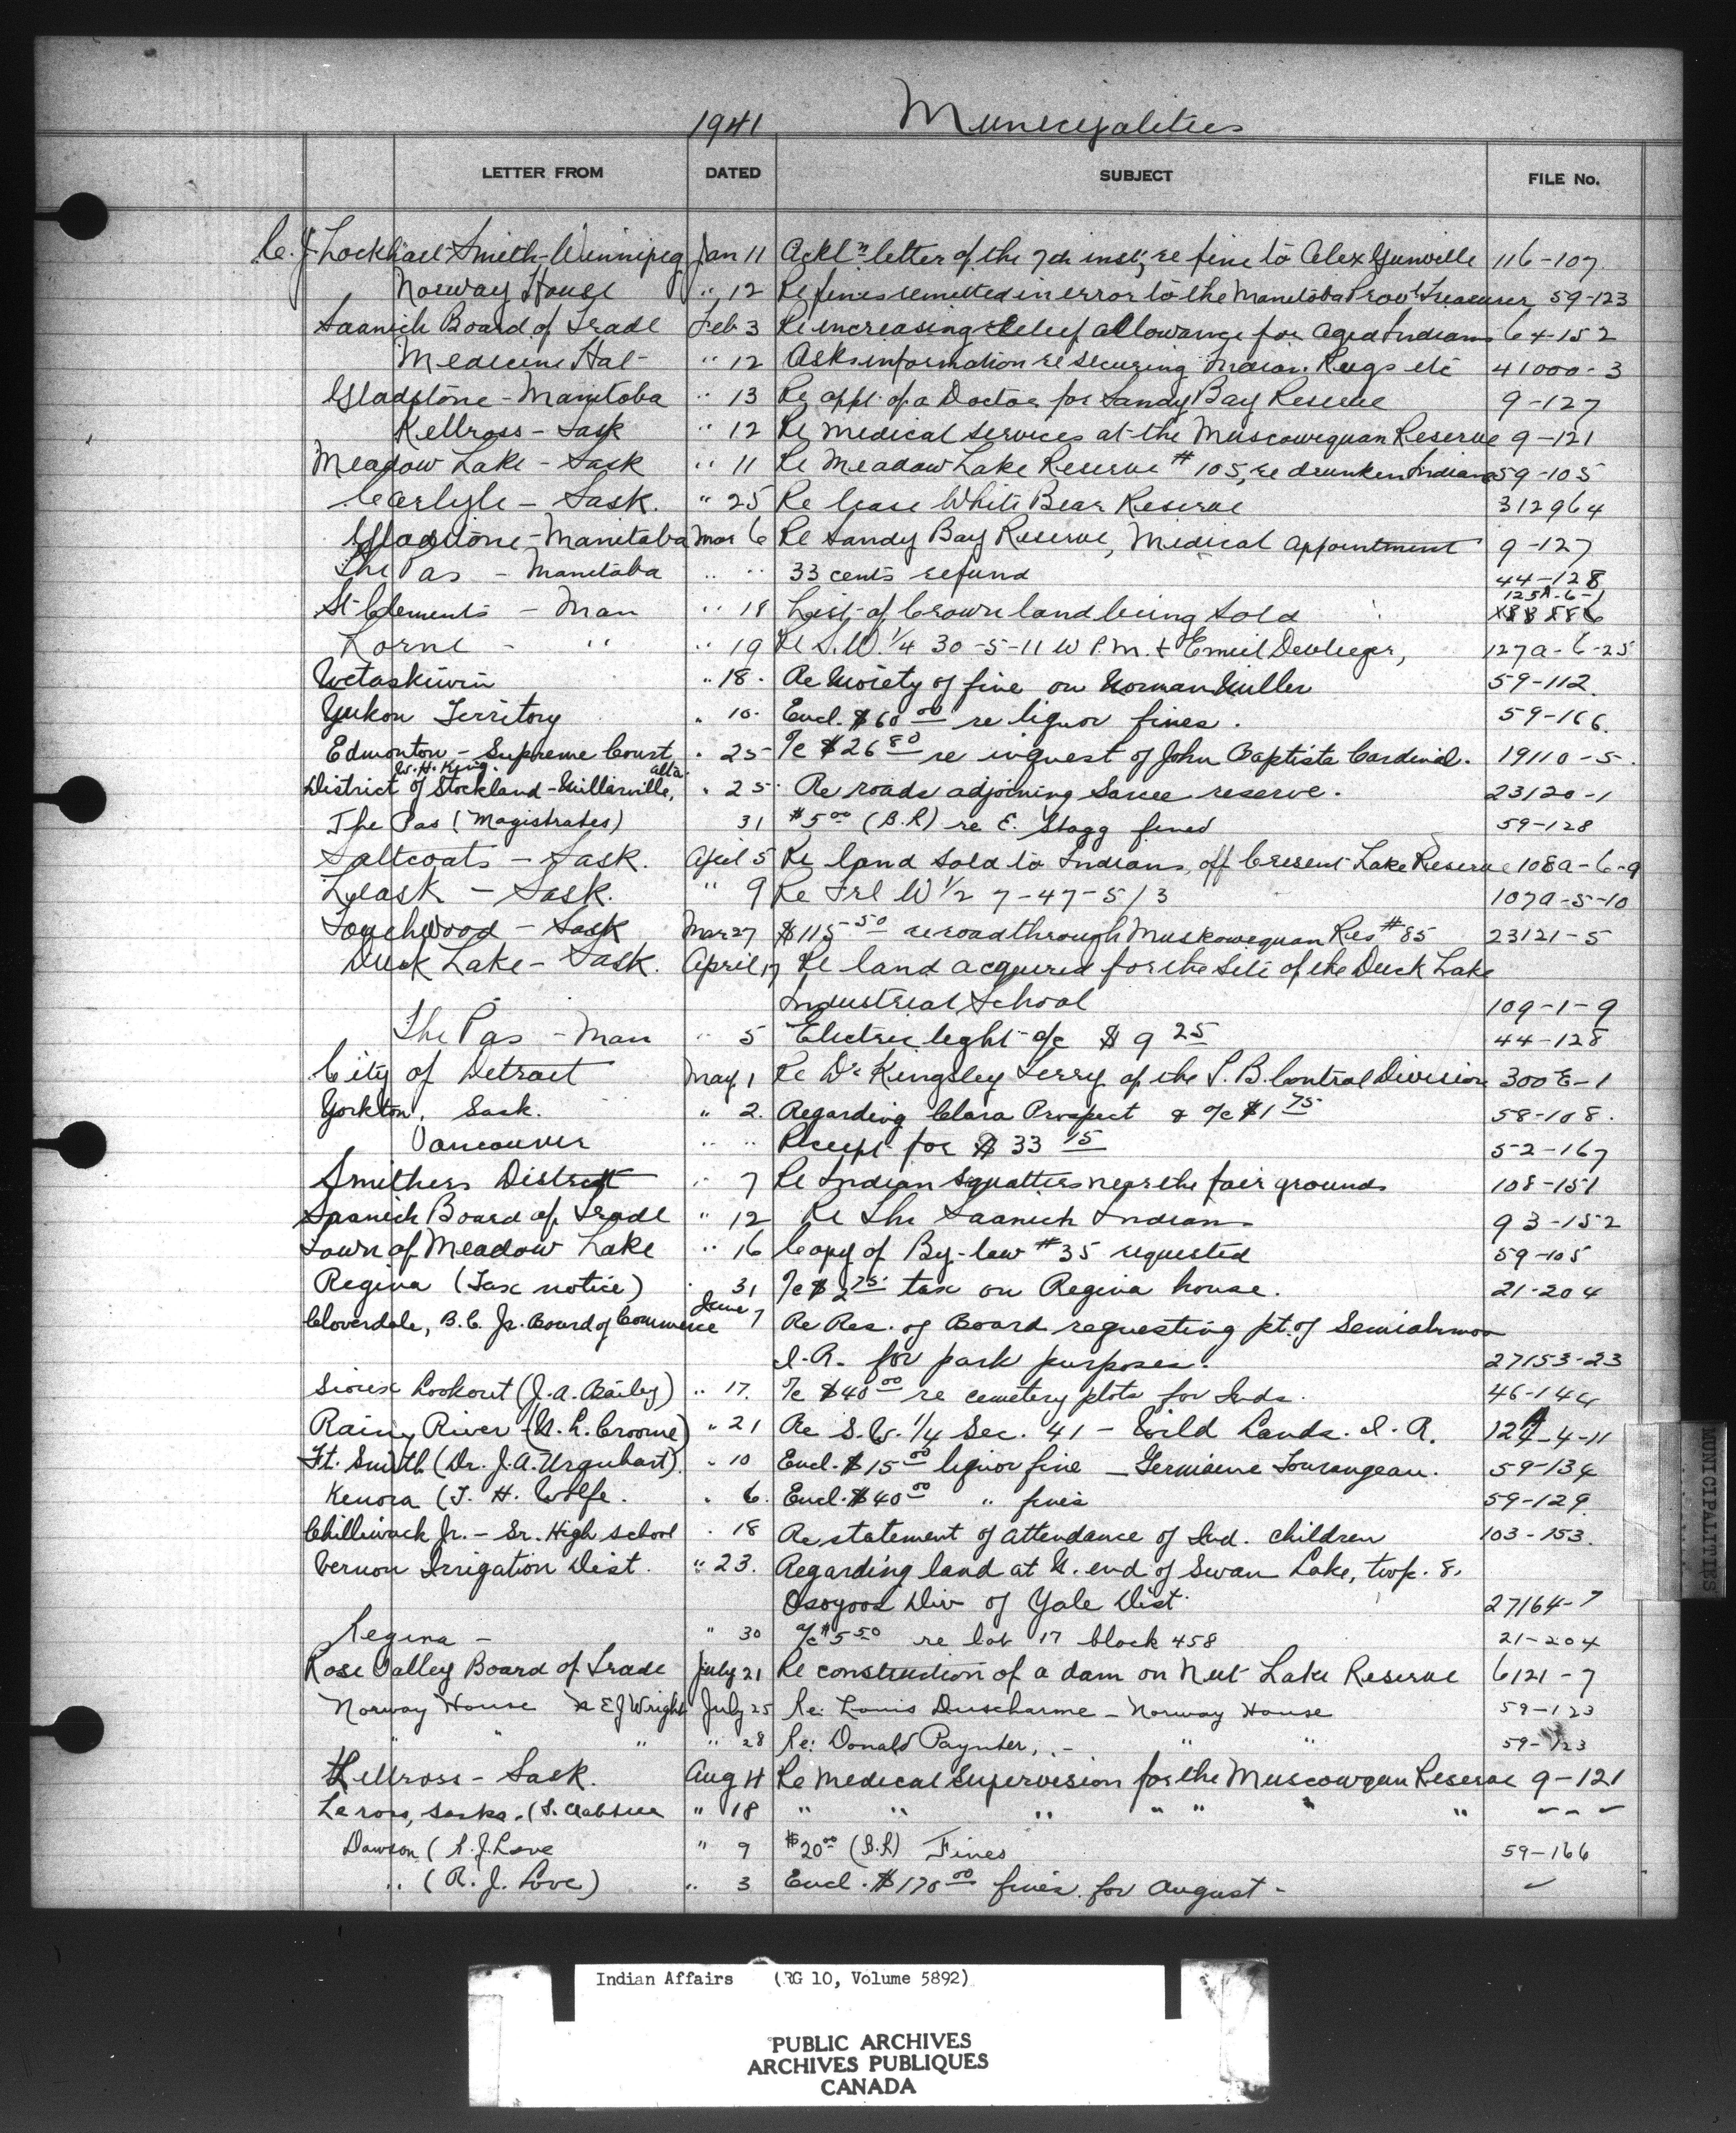 1941 Municipalities
LETTER FROM DATED SUBJECT FILE No.
C. J. Lockhart-Smith-Winnipeg Jan 11 Ackl'n letter of the 7th inst; re fine to Alex Gunville 116-107
Norway House " 12 Re fines remitted in error to the Manitoba Prov'l Treasurer 59-123
Saanich Board of Trade Feb 3 Re increasing relief allowance for aged Indians 64-152
Medicine Hat " 12 Asks information re securing Indian Rugs etc 41000-3
Gladstone - Manitoba " 13 Re appt. of a Doctor for Sandy Bay Reserve 9-127
Kellross - Sask " 12 Re medical services at the Muscowequan Reserve 9-121
Meadow Lake - Sask " 11 Re Meadow Lake Reserve # 105, re drunken Indians 59-105
Carlyle - Sask. " 25 Re lease White Bear Reserve 312964
Gladstone - Manitoba Mar 6 Re Sandy Bay Reserve, Medical Appointment 9-127
The Pas - Manitoba " " 33 cents refund 44-128
125A-6-1
St Clements - Man " 18 List of Crown land being sold
Lorne - " " 19 Re S.W. 1/4 30-5-11 W P.M. + Emiel Devlieger, 127a-6-25
Wetaskiwin " 18. Re Moiety of fine on Norman Miller 59-112.
Yukon Territory " 10. Encl. $60 00 re liquor fines. 59-166.
Edmonton - Supreme Court " 25 a/c $26 80 re inquest of John Baptiste Cardinal. 19110-5.
W. H. King. alta.
District of Stockland - Millarville, " 25. Re roads adjoining Sarcee reserve. 23120-1
The Pas (Magistrates) 31 $5 00 (B.R) re E. Stagg fined 59-128
Saltcoats - Sask. April 5 Re land sold to Indians, off Cresent Lake Reserve 108a-6-9
Leask - Sask. " 9 Re Frl W 1/2 7-47-5/3 107a-5-10
Touchwood - Sask Mar 27 $115 50 re road through Muskowequan Res #85 23121-5
Duck Lake - Sask. April 17 Re land acquired for the site of the Duck Lake
Industrial School 109-1-9
The Pas - Man " 5 Electric light a/c $ 9 25 44-128
City of Detroit May 1 Re Dr Kingsley Terry of the T.B. Control Division 300E-1
Yorkton, Sask. " 2. Regarding Clara Prospect & a/c $1 75 58-108.
Vancouver " " Receipt for $ 33 15 52-167
Smithers District " 7 Re Indian Squatters near the fair grounds 108-151
Saanich Board of Trade " 12 Re The Saanich Indians 93-152
Town of Meadow Lake " 16 Copy of By-law #35 requested 59-105
Regina (Tax notice) " 31 a/c $2 75 tax on Regina house. 21-204
Cloverdale, B.C. Jr. Board of Commerce June 7 Re Res. of Board requesting pt. of Semiahmoo
I.R. for park purposes. 27153-23
Sioux Lookout (J. A. Bailey) " 17. a/c $40 00 re cemetery plots for Inds. 46-144
Rainy River - (N. L. Croome) " 21 Re S.W. 1/4 Sec. 41 - Wild Lands. I.R. 127A-4-11
Ft. Smith (Dr. J. A. Urquhart) " 10 Encl. $15 00 liquor fine - Germaine Tourangeau. 59-134
Kenora (T. H. Wolfe. " 6. Encl. $40 00 " fines 59-129
Chilliwack Jr. - Sr. High school " 18 Re statement of attendance of Ind. children 103-153.
Vernon Irrigation Dist. " 23. Regarding land at N. end of Swan Lake, twp. 8,
Osoyoos Div of Yale Dist. 27164-7
Regina - " 30 a/c $5 50 re lot 17 block 458 21-204
Rose Valley Board of Trade July 21 Re construction of a dam on Nut Lake Reserve 6121-7
Norway House E J Wright July 25 Re: Louis Duscharme - Norway House 59-123
" " " " 28 Re: Donald Paynter, - " " 59-123
Kellross - Sask. Aug 4 Re Medical Supervision for the Muscowequan Reserve 9-121
Leross, Sask. " 18 " " " " " " "
Dawson (R. J. Love " 9 $20 00 (B.R) Fines 59-166
" (R. J. Love) " 3 Encl. $170 00 fines for August -
MUNICIPALITIES
Indian Affairs (RG 10, Volume 5892)
PUBLIC ARCHIVES
ARCHIVES PUBLIQUES
CANADA